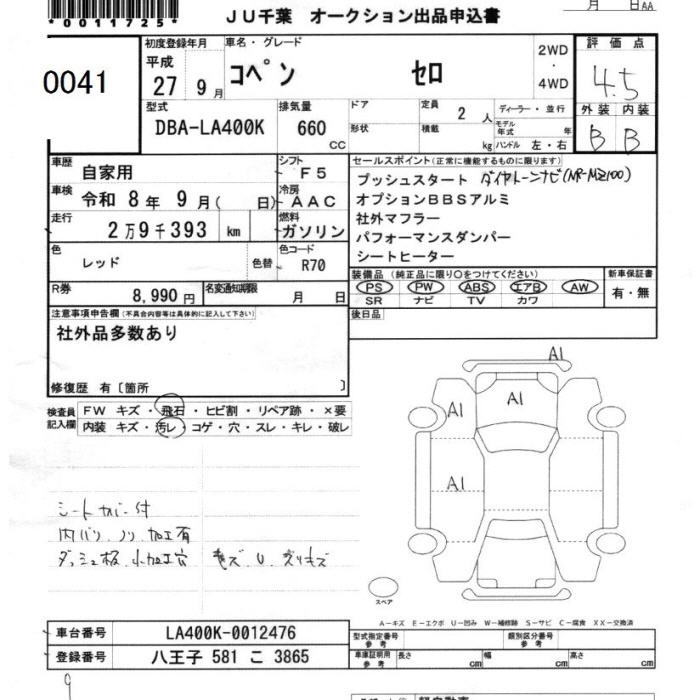 *0011725*
JU千葉 オークション出品申込書
月 日AA
0041
初度登録年月
平成
27 9月
車名・グレード
コペン セロ
2WD
・
4WD
評価点
4.5
型式
DBA-LA400K
排気量
660
CC
ドア
形状
定員 2 人
積載 kg
ディーラー・並行
モデル年式 年
ハンドル 左・右
外装 内装
B B
車歴 自家用
シフト F5
車検 令和 8年 9月( 日)
冷房 AAC
走行 2万9千393 km
燃料 ガソリン
色 レッド 色替
色コード R70
R券 8,990円
名変通知期限 月 日
セールスポイント(正常に機能するものに限ります)
プッシュスタート ダイヤトーンナビ(NR-MZ100)
オプションBBSアルミ
社外マフラー
パフォーマンスダンパー
シートヒーター
装備品(純正品に限り○をつけてください)
PS PW ABS エアB AW
SR ナビ TV カワ
新車保証書
有・無
後日品
注意事項申告欄(不具合内容等は具体的に記入して下さい)
社外品多数あり
修復歴 有〔箇所 〕
検査員記入欄
FW キズ・飛石・ヒビ割・リペア跡・×要
内装 キズ・汚レ・コゲ・穴・スレ・キレ・破レ
シートカバー付
内バリ、ノリ、加工有
ダッシュ板、小加工穴 キズ、U、スリキズ
A1
A1
A1
A1
スペア
A-キズ E-エクボ U-凹み W-補修跡 S-サビ C-腐食 XX-交換済
車台番号 LA400K-0012476
登録番号 八王子 581 こ 3865
型式指定番号 参考
類別区分番号 参考
車庫証明用 参考 長さ cm 幅 cm 高さ cm